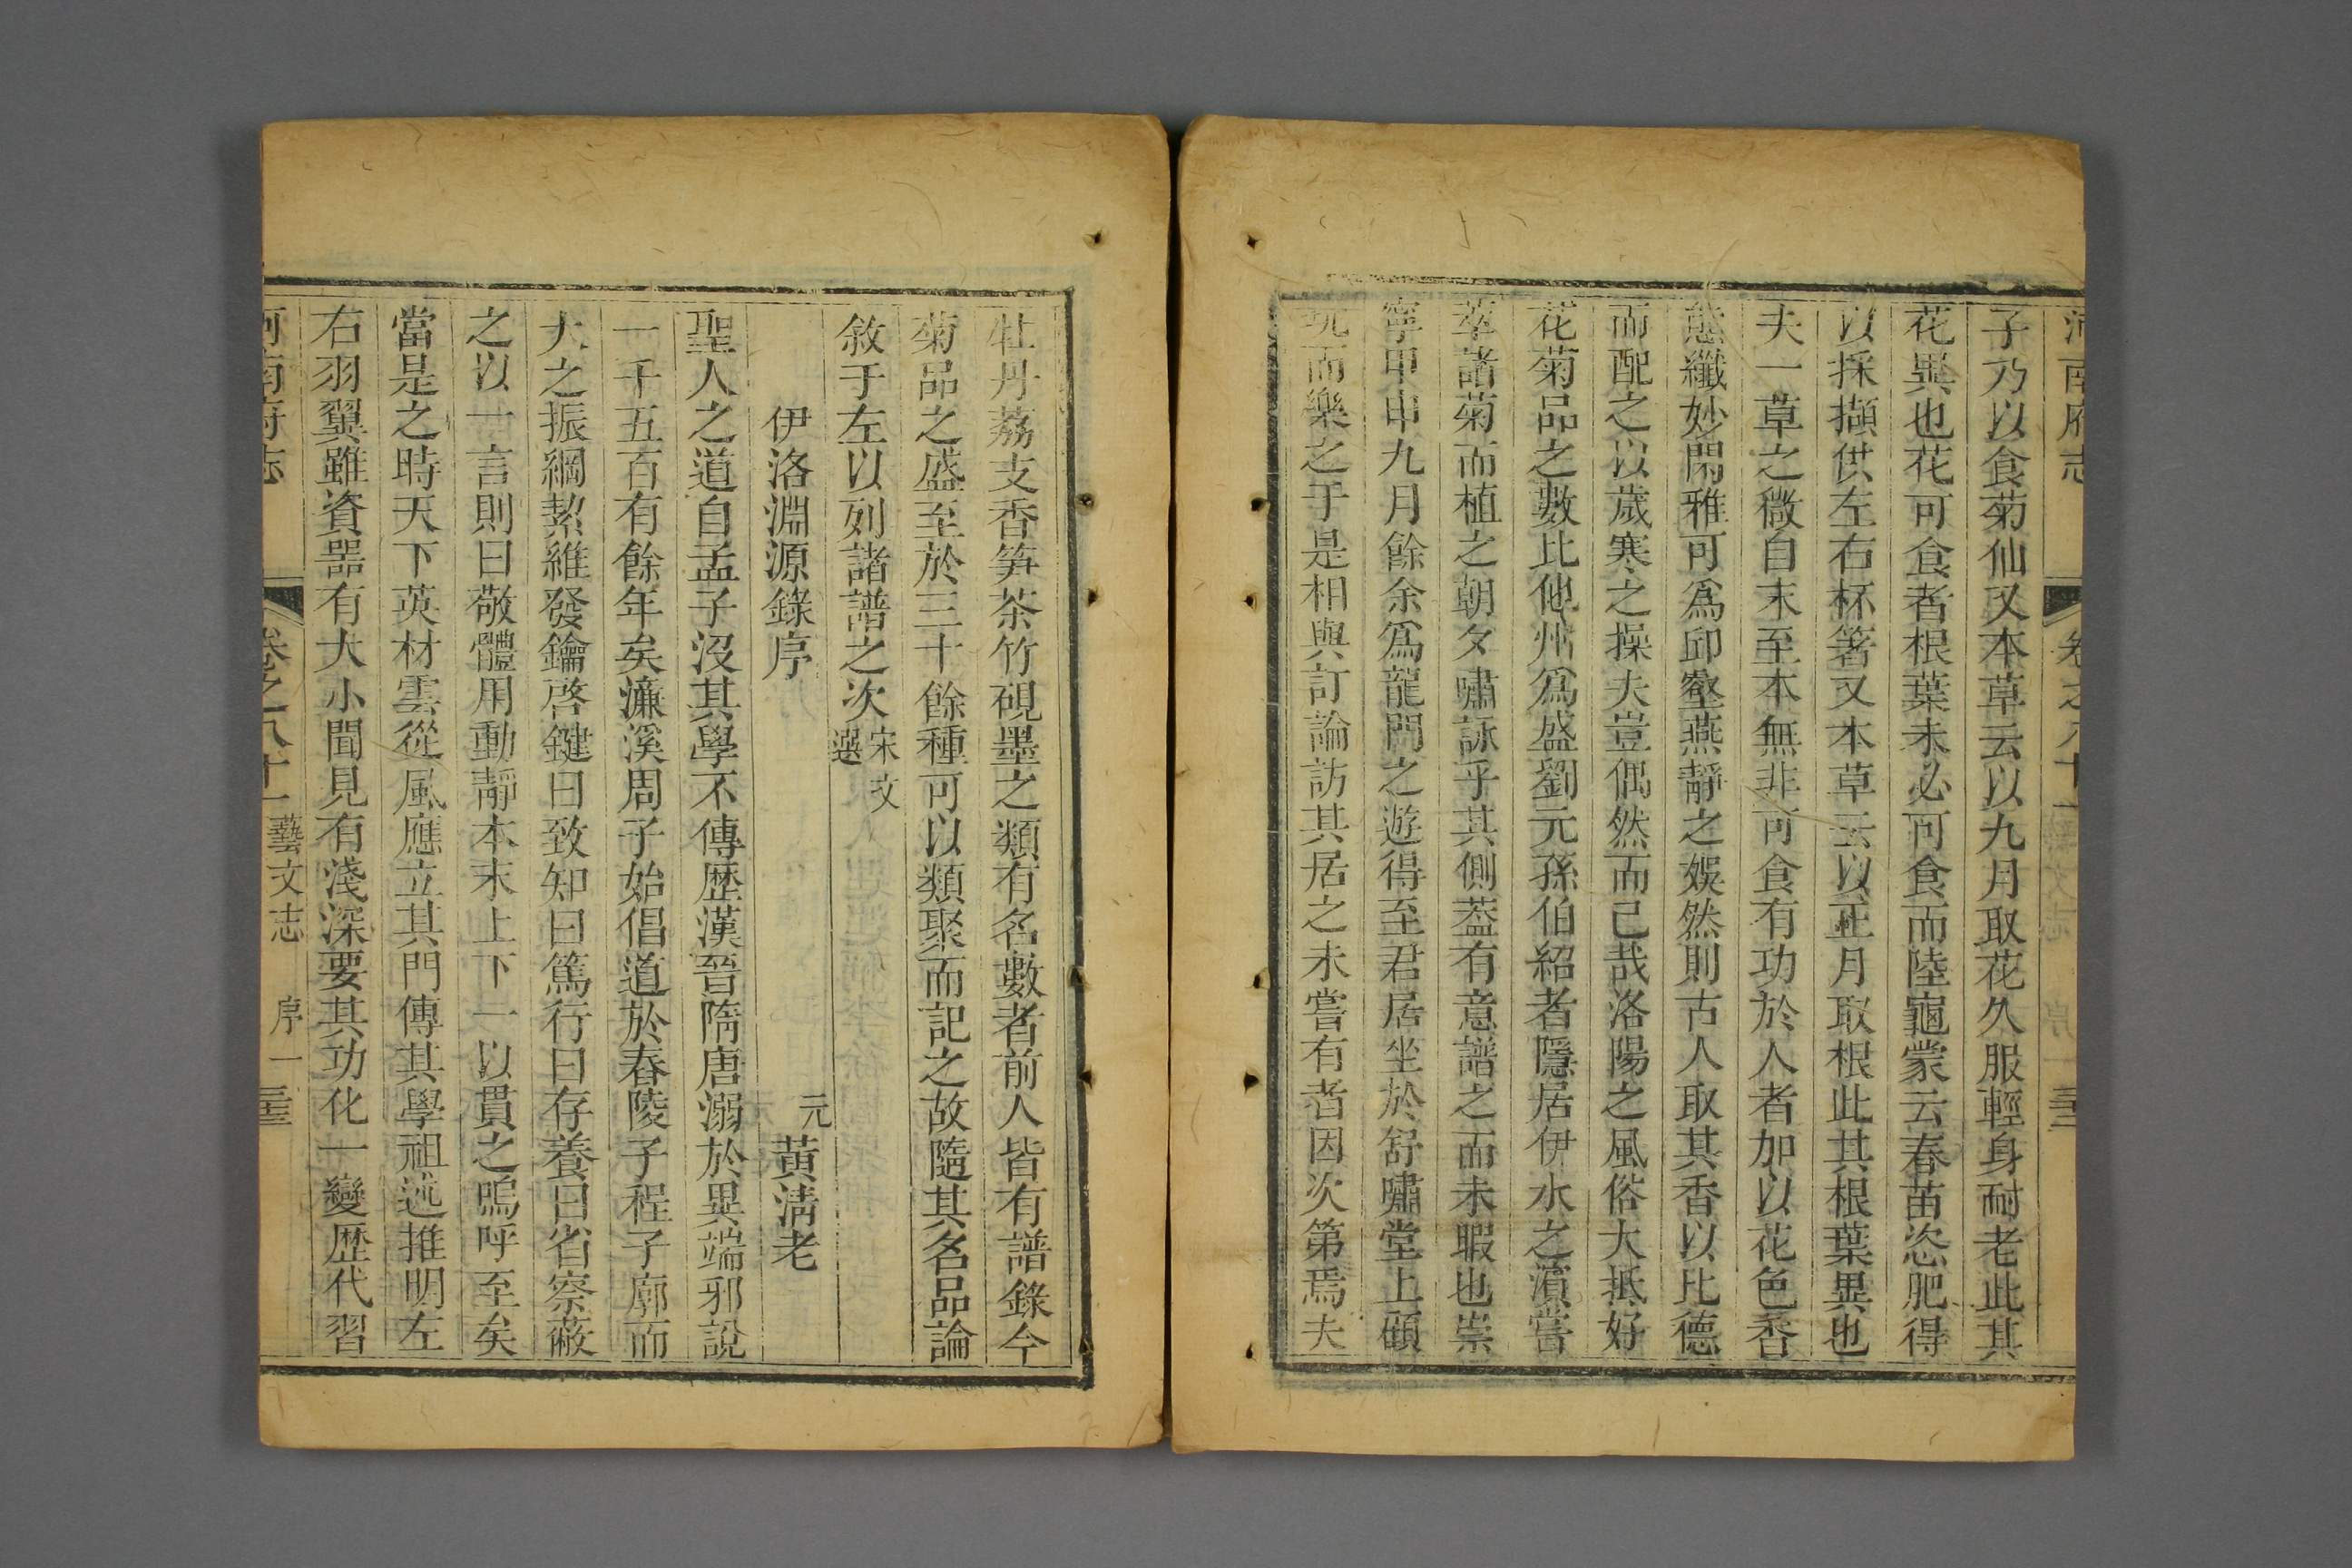 河南府志 卷之八十一
子乃以食菊仙又本草云以九月取花久服輕身耐老此其
花異也花可食者根葉未必可食而陸龜蒙云春苗恣肥得
以採擷供左右杯箸又本草云以正月取根此其根葉異也
夫一草之微自末至本無非可食有功於人者加以花色香
態纖妙閑雅可爲邱壑燕靜之娛然則古人取其香以比德
而配之以歲寒之操夫豈偶然而已哉洛陽之風俗大抵好
花菊品之數比他州爲盛劉元孫伯紹者隱居伊水之濱嘗
萃諸菊而植之朝夕嘯詠乎其側葢有意譜之而未暇也崇
寧甲申九月餘余爲龍門之遊得至君居坐於舒嘯堂上顧
玩而樂之于是相與訂論訪其居之未嘗有者因次第焉夫
牡丹荔支香笋茶竹硯墨之類有名數者前人皆有譜錄今
菊品之盛至於三十餘種可以類聚而記之故隨其名品論
敘于左以列諸譜之次宋文選
伊洛淵源錄序 元黃淸老
聖人之道自孟子沒其學不傳歷漢晉隋唐溺於異端邪說
一千五百有餘年矣濂溪周子始倡道於春陵子程子廓而
大之振綱絜維發鑰啓鍵曰致知曰篤行曰存養曰省察蔽
之以一言則曰敬體用動靜本末上下一以貫之嗚呼至矣
當是之時天下英材雲從風應立其門傳其學祖述推明左
右羽翼雖資噐有大小聞見有淺深要其功化一變歷代習
河南府志 卷之八十一藝文志 序一